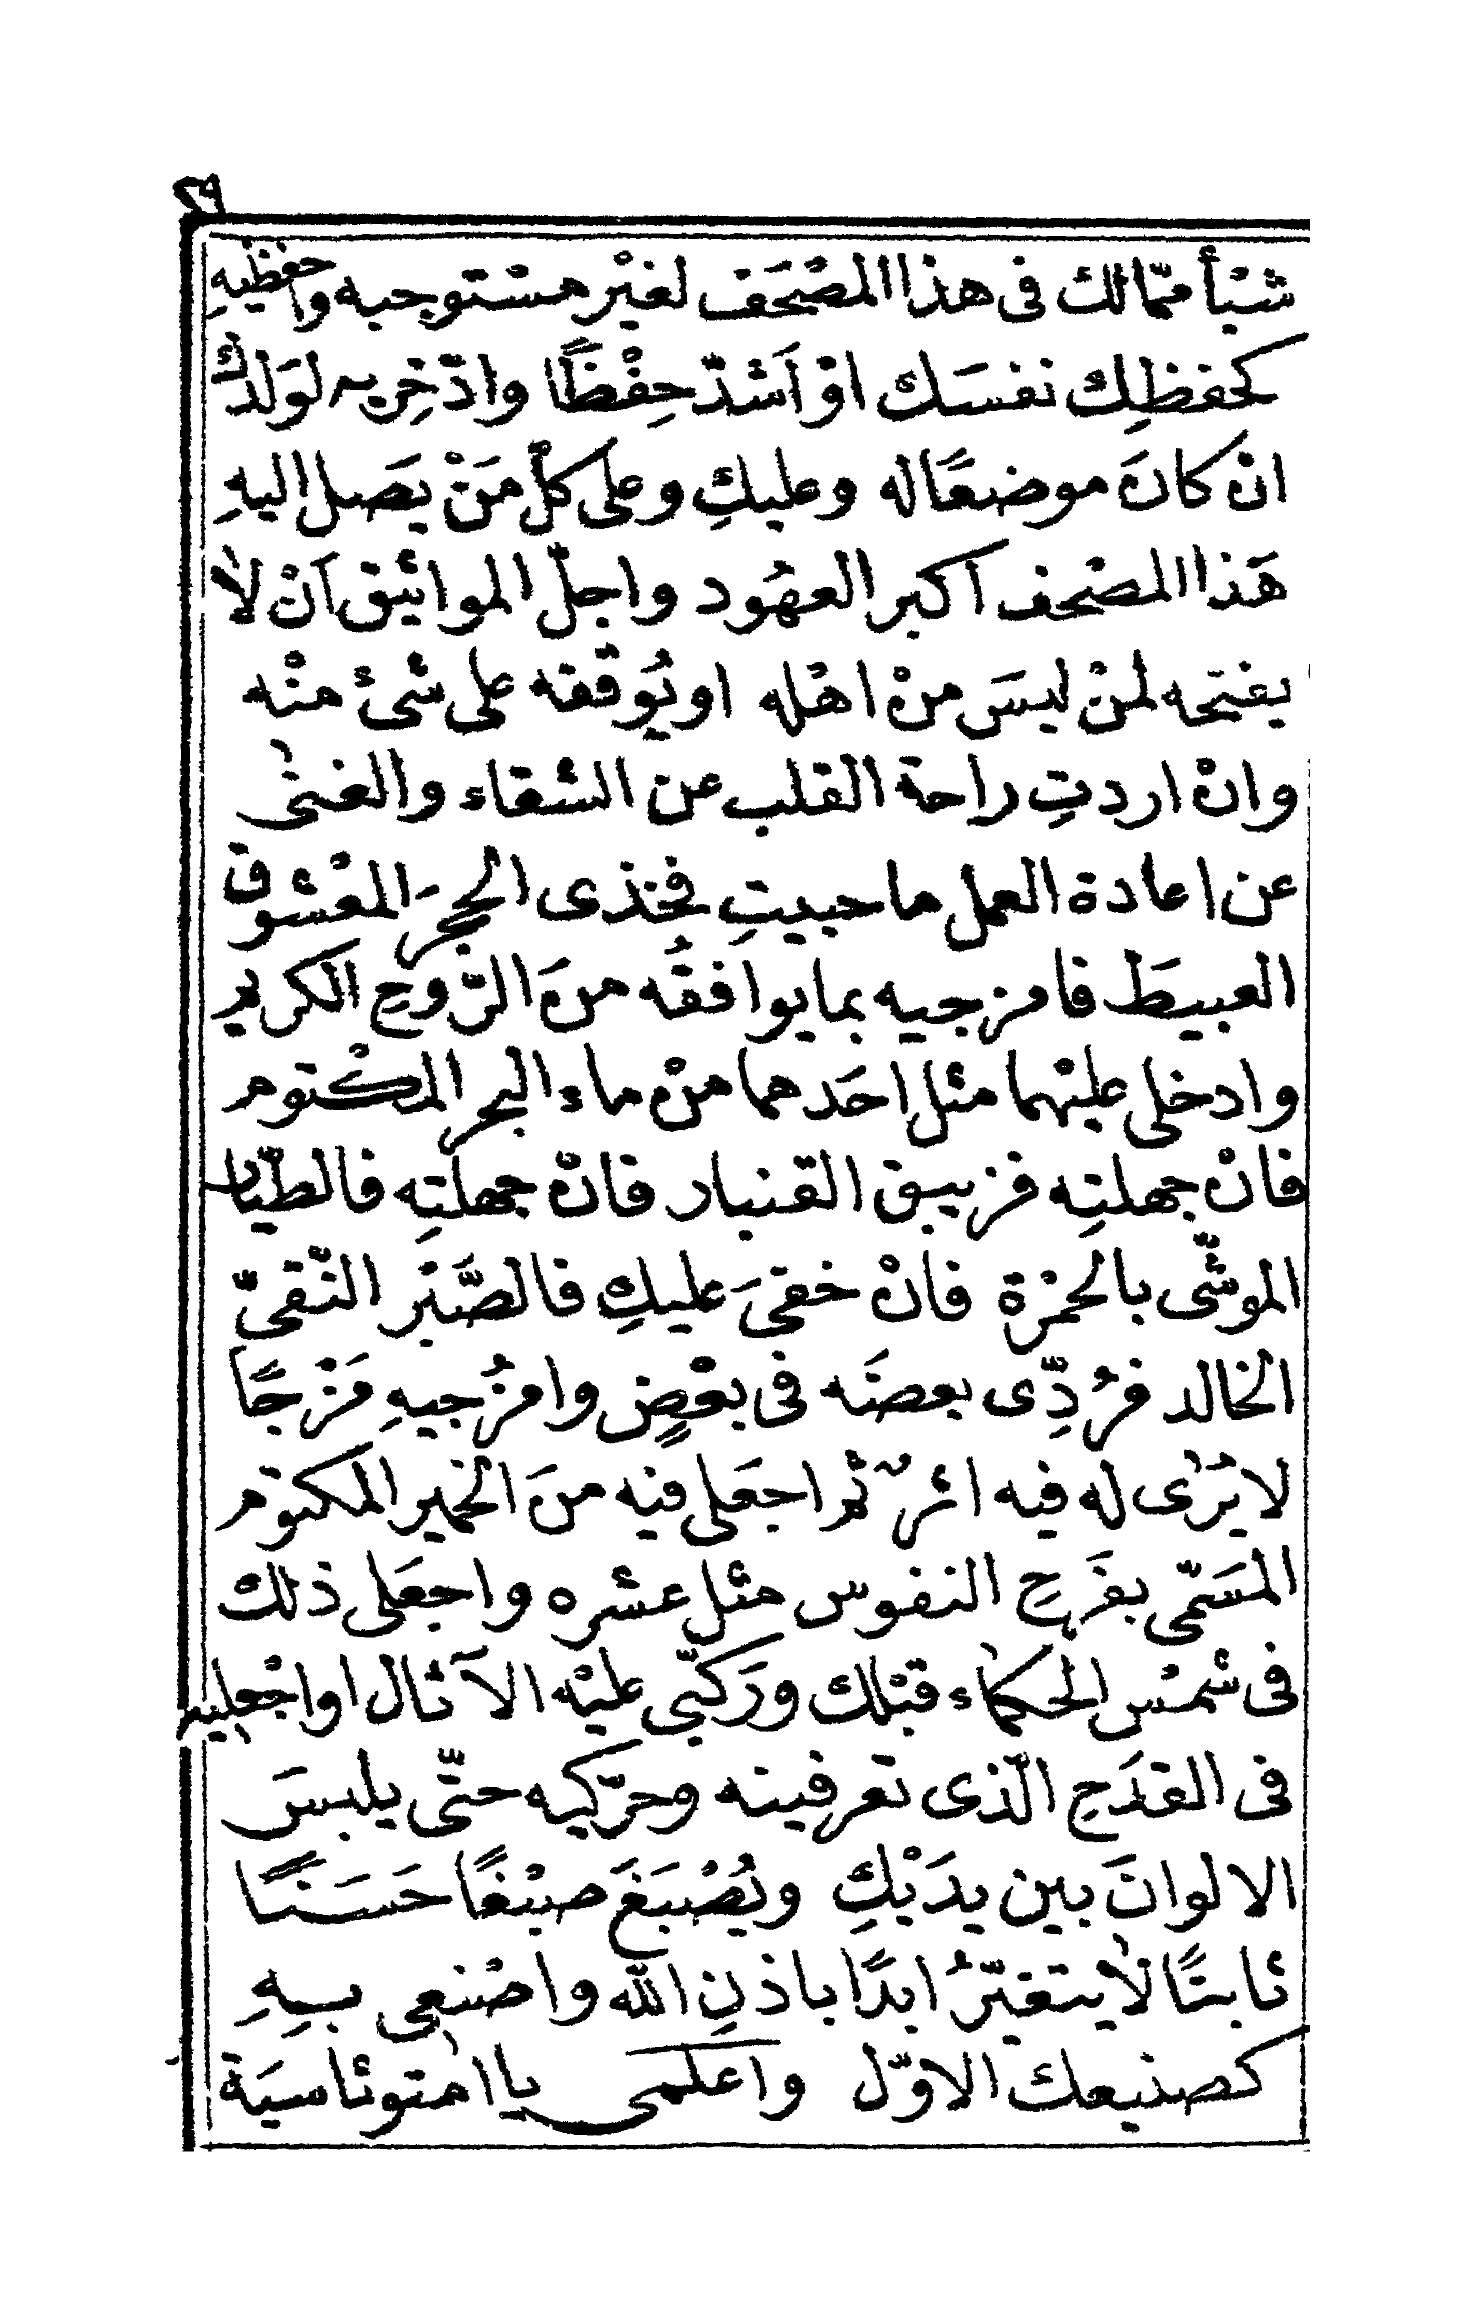 ٢٩
شيأ ممّالك فى هذا المصْحَف لغيْر مسْتوجبه واحفظيهِ
كحفظِكِ نفسَك اوْ اَشدّ حِفْظًا وادّخِريه لوَلدكِ
انْ كانَ موضعًا له وعليكِ وعلى كلّ مَنْ يَصل اليهِ
هَذا المصْحف اكبر العهُود واجلّ المواثيق اَنْ لا
يفتحه لمنْ ليسَ منْ اهْله او يُوقفه على شئ منْه
وانْ اردتِ راحة القلب عن الشقاء والغنى
عن اعادة العمل ما حييتِ فخذى الحجرَ المعْشوق
العبيط فامزجيه بما يوافقُه منَ الرّوحِ الكريم
وادخلى عليْهما مثل احَدهما منْ ماء البحر المكْتوم
فانْ جهلتِه فزيبق القنبار فانْ جهلتِه فالطّيار
الموشّى بالحمْرة فانْ خفىَ عليكِ فالصَّبْر النّقىّ
الخالد فرُدِّى بعضَه فى بعْضٍ وامزُجيهِ مَزْجًا
لا يُرٰى له فيه اثرٌ ثم اجعَلى فيْه منَ الخمير المكتوْم
المسَمّى بفَرَحِ النفوس مثل عشره واجعَلى ذلك
فى شمْس الحكماء قبْلك ورَكبّى عليْه الآثال او اجْعليه
فى القدَحِ الّذى تعرفينه وحرّكيه حتّى يلبسَ
الالوانَ بين يدَيْكِ ويُصْبَغَ صبْغًا حَسَنًا
ثابتًا لا يتغيّرُ ابدًا باذنِ الله واصْنعى بـهِ
كصنيعك الاوّل واعلمى يا امتوثاسيَة